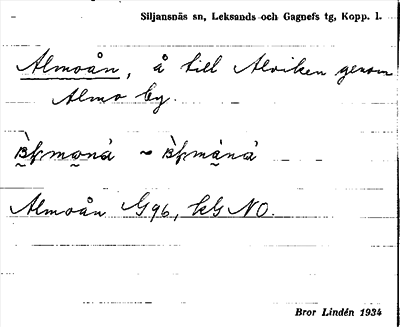 Siljansnäs sn, Leksands och Gagnefs tg, Kopp. l.
Almoån, å till Alviken genom
Almo by.
~
Almoån G96, kG NO.
Bror Lindén 1934